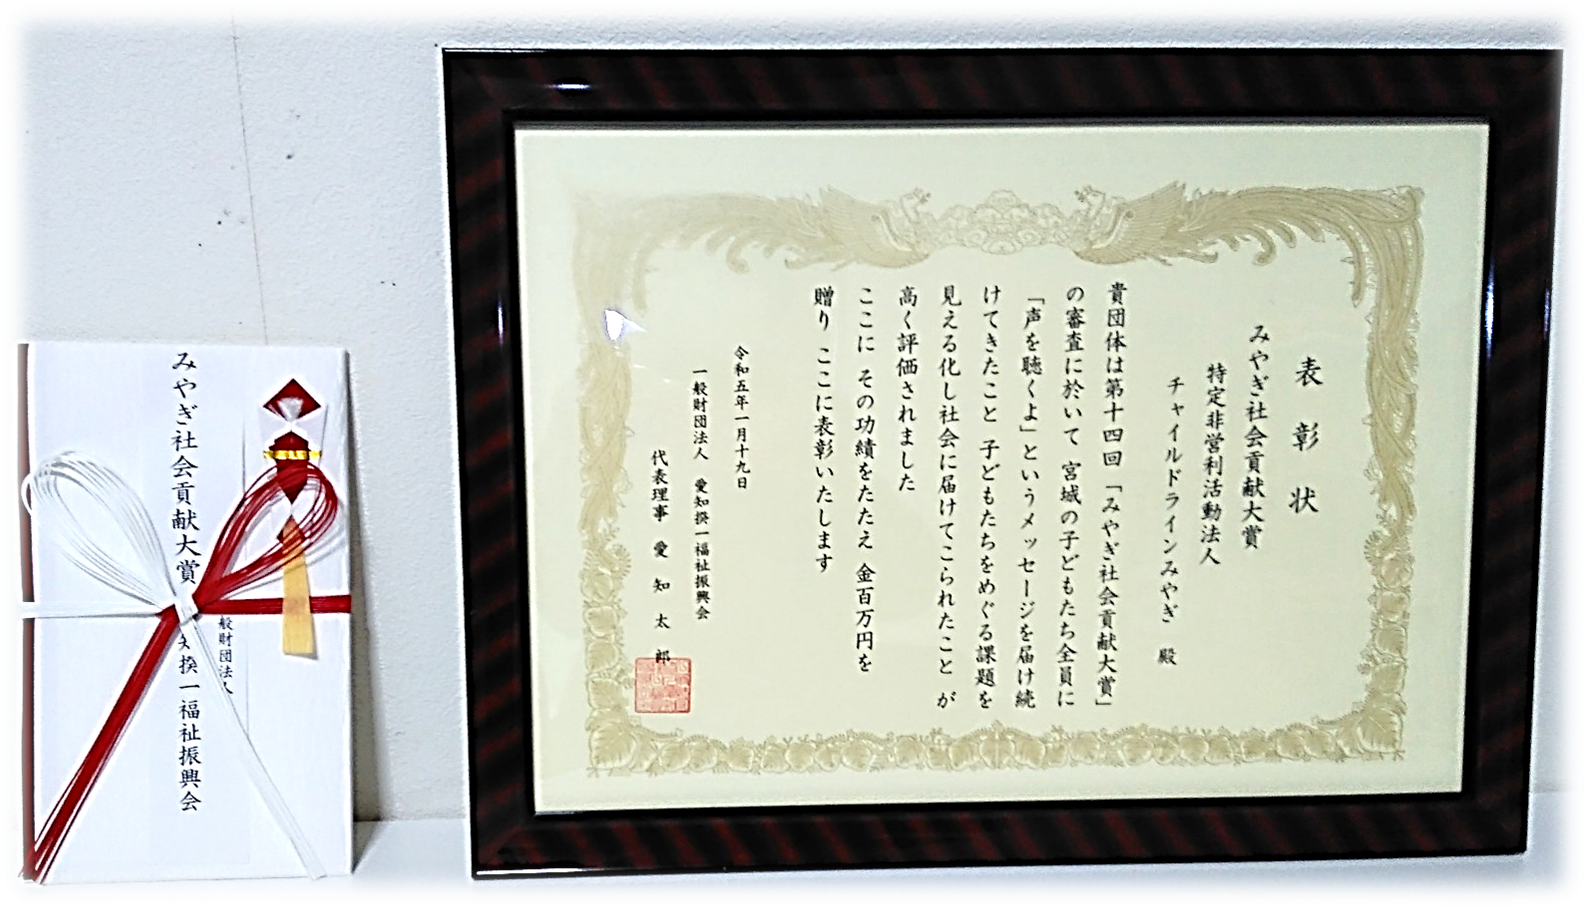 表彰状
みやぎ社会貢献大賞
特定非営利活動法人
チャイルドラインみやぎ 殿
貴団体は第十四回「みやぎ社会貢献大賞」
の審査に於いて 宮城の子どもたち全員に
「声を聴くよ」というメッセージを届け続
けてきたこと 子どもたちをめぐる課題を
見える化し社会に届けてこられたこと が
高く評価されました
ここに その功績をたたえ 金百万円を
贈り ここに表彰いたします
令和五年一月十九日
一般財団法人 愛知揆一福祉振興会
代表理事 愛知太郎
みやぎ社会貢献大賞
般財団法人
揆一福祉振興会